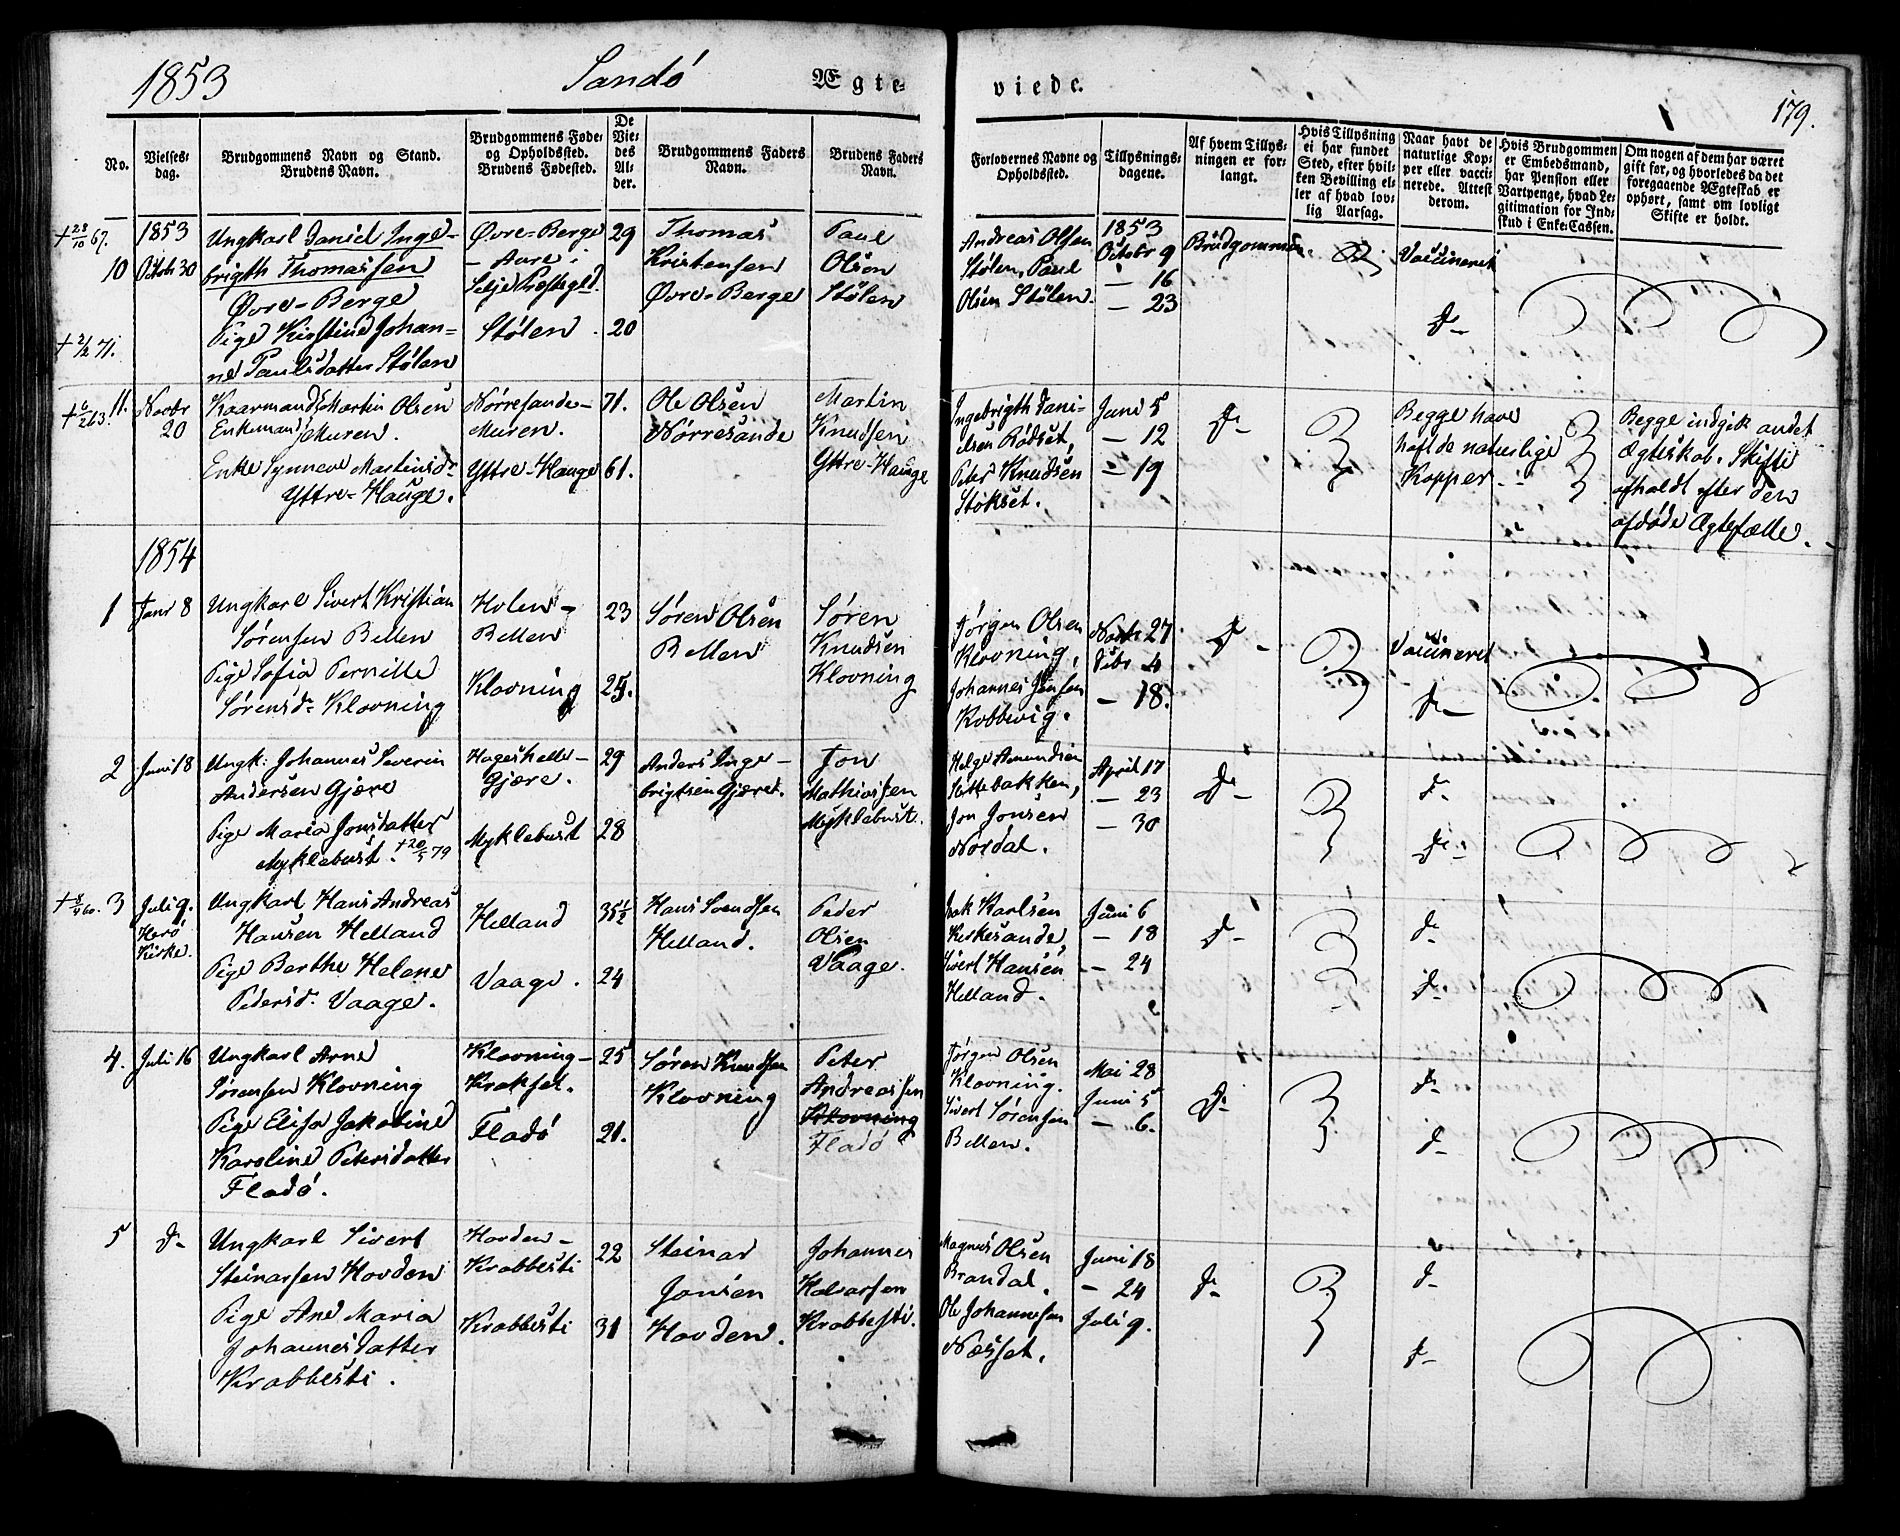 1853
Sandö
Ægte-
viede.
179.
No.
Vielses-
dag.
Brudgommens Navn og Stand.
Brudens Navn.
Brudgommens Føde-
og Opholdssted.
Brudens Fødested.
De
Vie-
des
Al-
der.
Brudgommens Faders
Navn.
Brudens Faders
Navn.
Forlovernes Navne og
Opholdssted.
Tillysnings-
dagene.
Af hvem Tillys-
ningen er for-
langt.
Hvis Tillysning
ei har fundet
Sted, efter hvil-
ken Bevilling el-
ler af hvad lov-
lig Aarsag.
Naar havt de
naturlige Kop-
per eller vacci-
nerede. Attest
derom.
Hvis Brudgommen
er Embedsmand,
har Pension eller
Vartpenge, hvad Le-
gitimation for Ind-
skud i Enke-Cassen.
Om nogen af dem har været
gift før, og hvorledes da det
foregaaende Ægteskab er
ophørt, samt om lovligt
Skifte er holdt.
+ 28/10 67.
10
1853
Octobr 30
Ungkarl Daniel Inge-
brigth Thomassen
Øvre-Berge
Pige Kirstine Johan=
ne Paulsdatter Stölen
+ 2/2 71.
Øvre-Berge
- Aure,
Selje Præstegld.
Stölen
29
20
Thomas
Kristensen
Øvre-Berge
Paul
Olsen
Stölen
Andreas Olsen
Stölen, Paul
Olsen Stölen.
1853
Octobr 9
- 16
- 23
Brudgommen
Vaccineret
D-
+ 6/2 63.
11.
Novbr
20
Kaarmand Martin Olsen
Enkemand Muren.
Enke Synneve Martinsd-
Yttre-Hauge.
Nörresande-
Muren.
Yttre-Hauge
71.
61.
Ole Olsen
Nörresande
Martin
Knudsen
Yttre-Hauge
Ingebrigth Dani-
elsen Rödset,
Peter Knudsen
Stökset.
Juni 5
- 12
- 19
D-
Begge have
haft de naturlige
Kopper
Begge indgik andet
Ægteskab. Skifte
afholdt efter den
afdøde Ægtefælle.
1854
1
Janr 8
Ungkarl Sivert Kristian
Sörensen Belten
Pige Sofia Pernille
Sörensd- Klovning
Holen-
Belten
Klovning
23
25.
Sören Olsen
Belten
Sören
Knudsen
Klovning
Jörgen Olsen
Klovning,
Johannes Jensen
Kobbevig.
Novbr 27
Debr 4
- 18.
D-
Vaccineret
D-
2
Juni 18
Ungk: Johannes Severin
Andersen Gjære
Pige Maria Jonsdatter
Myklebust. + 20/5 79
Hageshelle-
Gjære.
Myklebust
29
28
Anders Inge-
brigtsen Gjæret.
Jon
Mathiassen
Myklebust.
Helge Amundsen
Slettebakken,
Jon Jonsen
Nordal.
April 17
- 23
- 30
D-
D-
D-
+ 8/4 60.
3
Juli 9.
Herö
Kirke.
Ungkarl Hans Andreas
Hansen Helland
Pige Berthe Helene
Pedersd. Vaage.
Helland
Vaage.
35 1/2
24
Hans Svendsen
Helland.
Peder
Olsen
Vaage.
Isak Karlsen
Kirkesande,
Sivert Hansen
Helland.
Juni 6
- 18
- 24
D-
D-
D-
4.
Juli 16
Ungkarl Arne
Sörensen Klovning
Pige Elisa Jakobine
Karoline Petersdatter
Fladö.
Klovning-
Krakset.
Fladö
25
21.
Sören Knudsen
Klovning
Peter
Andreassen
Klovning
Fladö
Jörgen Olsen
Klovning.
Sivert Sörensen
Belten.
Mai 28
Juni 5
- 6.
D-
D-
D-
5
D-
Ungkarl Sivert
Steinarsen Hovden
Pige Ane Maria
Johannesdatter
Krabbesti.
Hovden-
Krabbesti
Krabbesti
22
31
Steinar
Jonsen
Hovden.
Johannes
Halvarsen
Krabbesti.
Magnus Olsen
Brandal.
Ole Johannesen
Næsset.
Juni 18
- 24
Juli 9.
D-
D-
D-